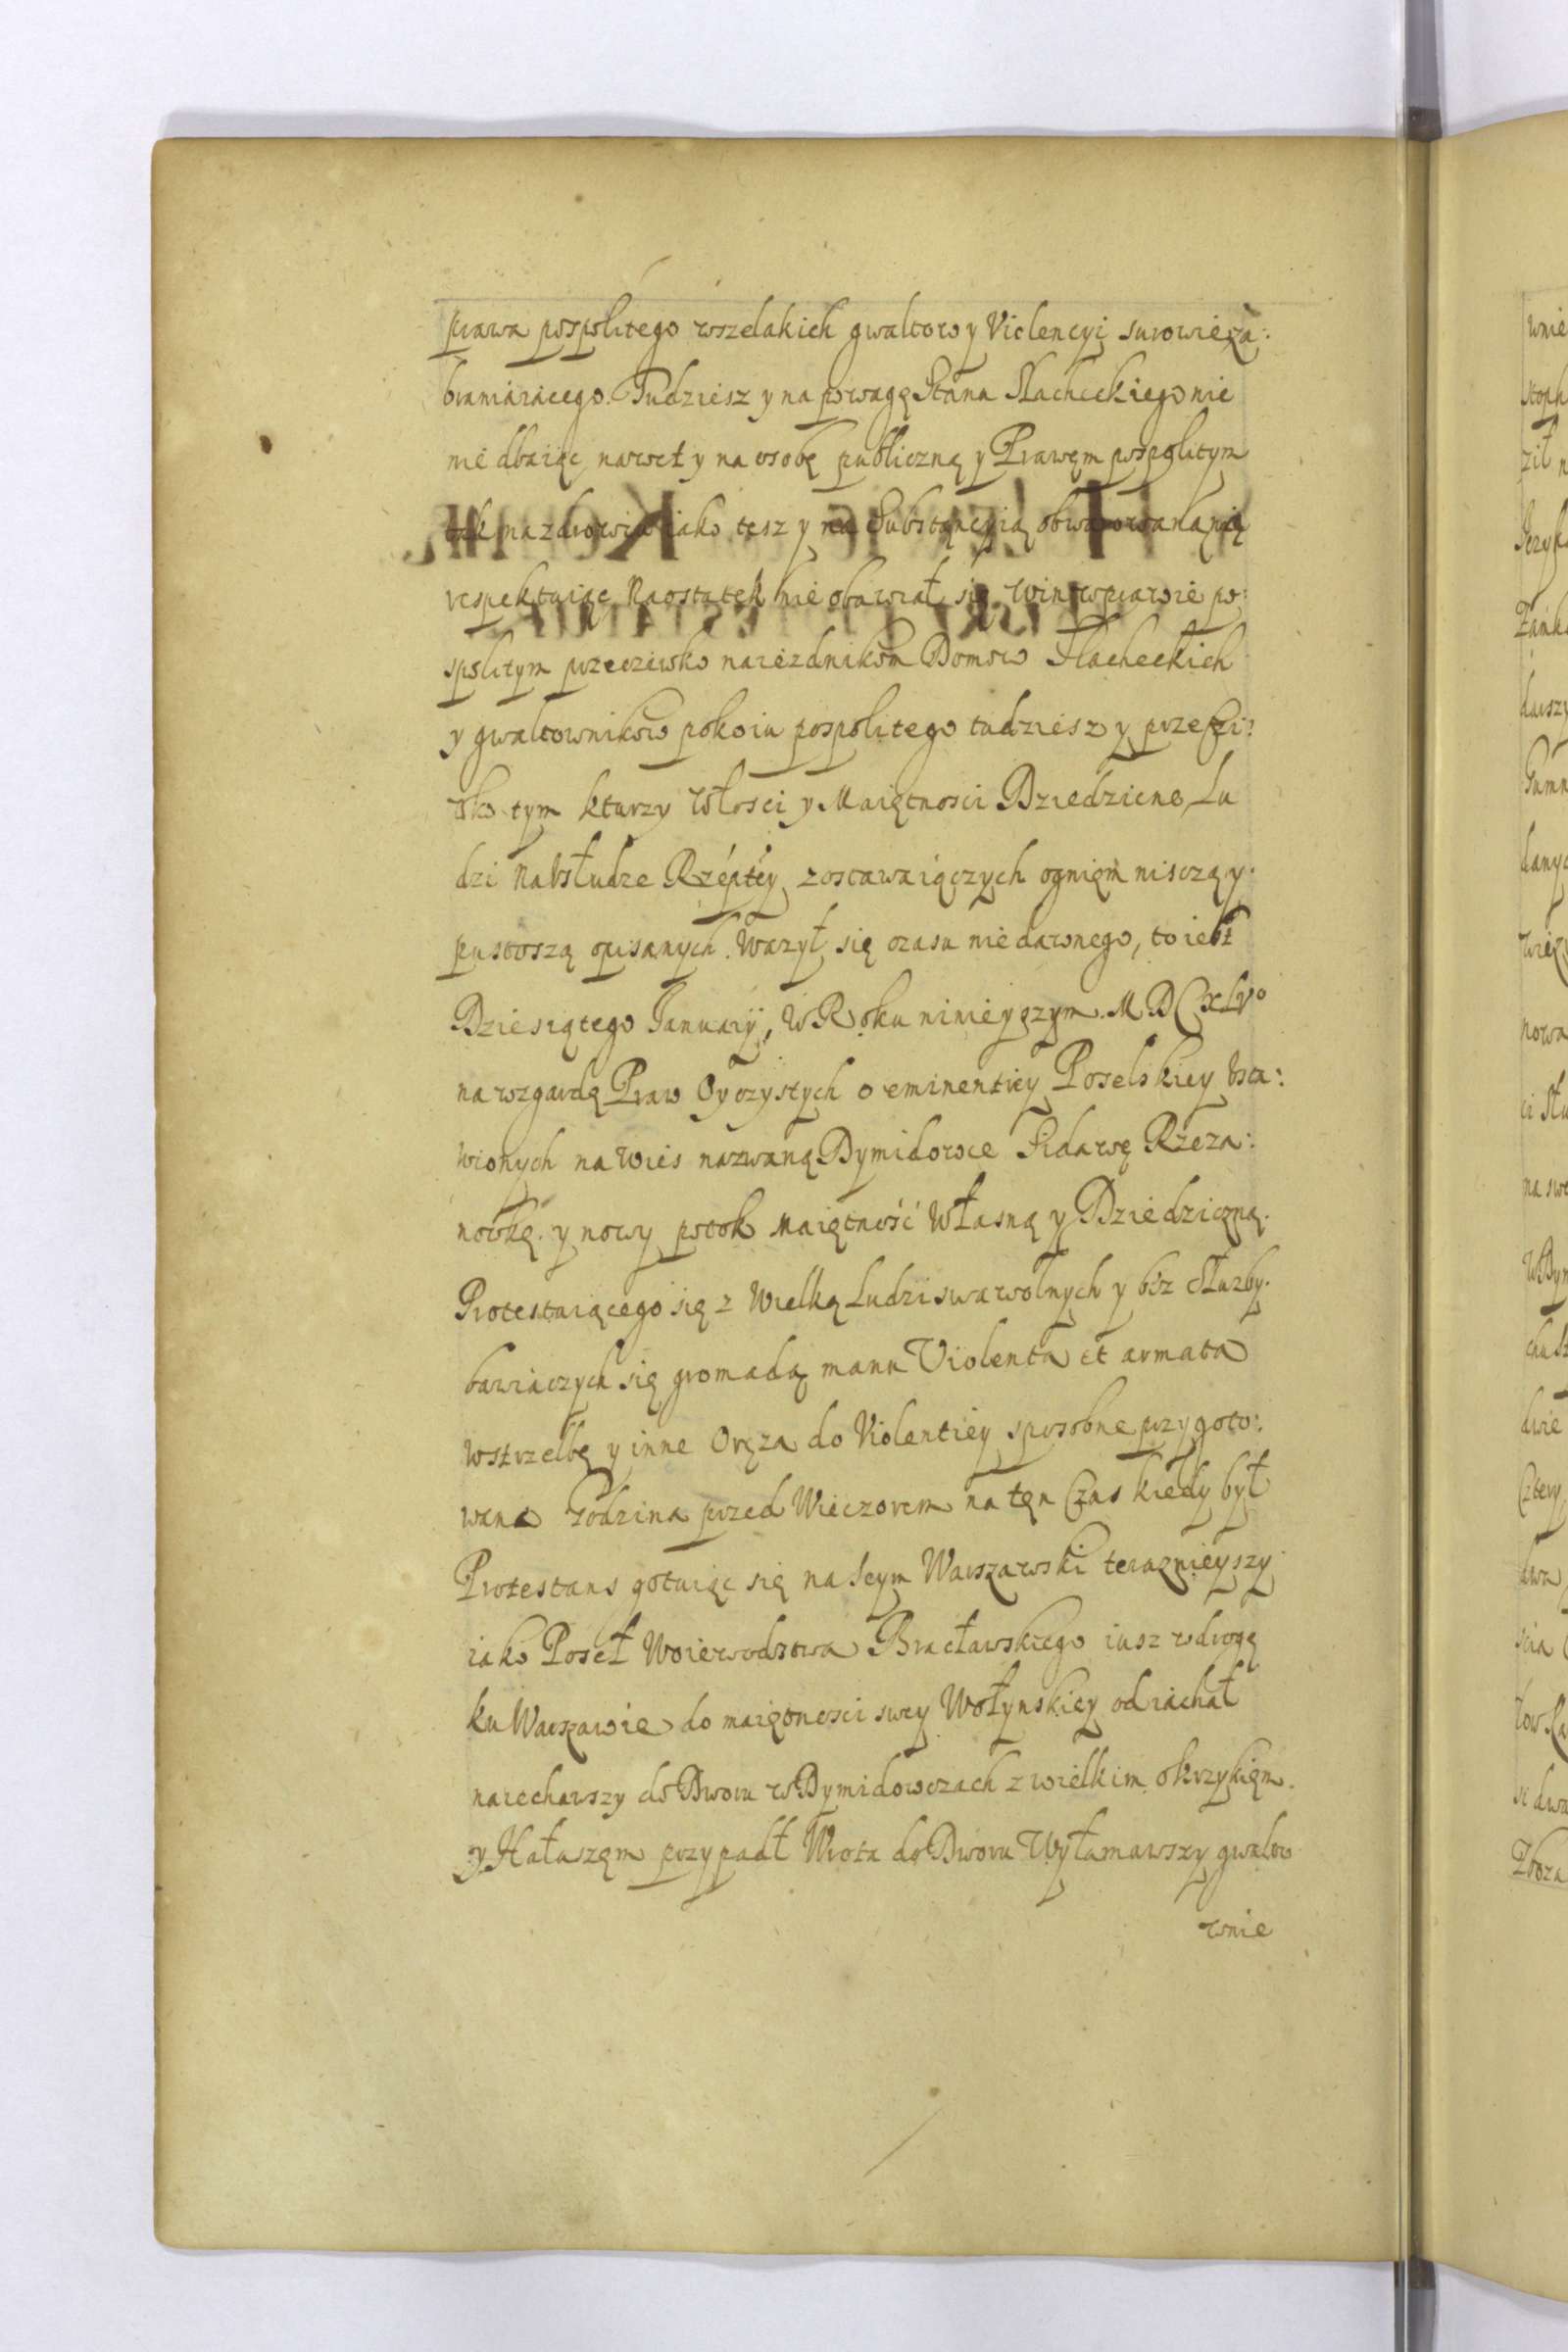 prawa pospolitego wszelakich gwałtow y Violencyi surowie za:
braniaiącego. Tudziesz y na powagę Stanu Slacheckiego nie
nie dbaiąc, nawet y na osobę publiczną y Prawęm pospolitym
tak na zdrowiu iako tesz y na Substancyią obwarowaną nie
respektuiąc Naostatek nie obawiał się win wprawie po:
spolitym przeciwko naiezdnikom Domow Slacheckich
y gwałtownikow pokoiu pospolitego tudziesz y przeczi:
wko tym kturzy Włosci y Maiętnosci Dziedzicne Lu
dzi na Usłudze Rzeptey zostawaiączych ognięm nisczą y
pustoszą opisanych. Wazył się czasu nie dawnego, to iest
Dziesiątego January, W Roku ninieyszym. M D C XLVo
na wzgardę Praw Oyczystych o eminentiey Poselskiey Usta:
wionych na wies nazwaną Dymidowce Sidawę Rzeza:
nowkę. y nowy potok Maiętność Własną y Dziedziczną.
Protestuiącego się z Wielką Ludzi swawolnych y bez Służby.
bawiączych się gromadą manu Violenta et armata
w strzelbę y inne Oręza do Violentiey sposobne przygoto:
wana Godzina przed Wieczorem na tęn Czas kiedy był
Protestans gotuiąc się na Seym Warszawski teraznieyszy
iako Poseł Woiewodztwa Bracławskiego iusz w drogę
ku Warszawie do maiętnosci swey Wołynskiey odiachał
naiechawszy do Dworu w Dymidowczach z wielkim okrzykięm.
y Hałaszęm przypadł Wrota do Dworu Wyłamawszy gwałto
wnie